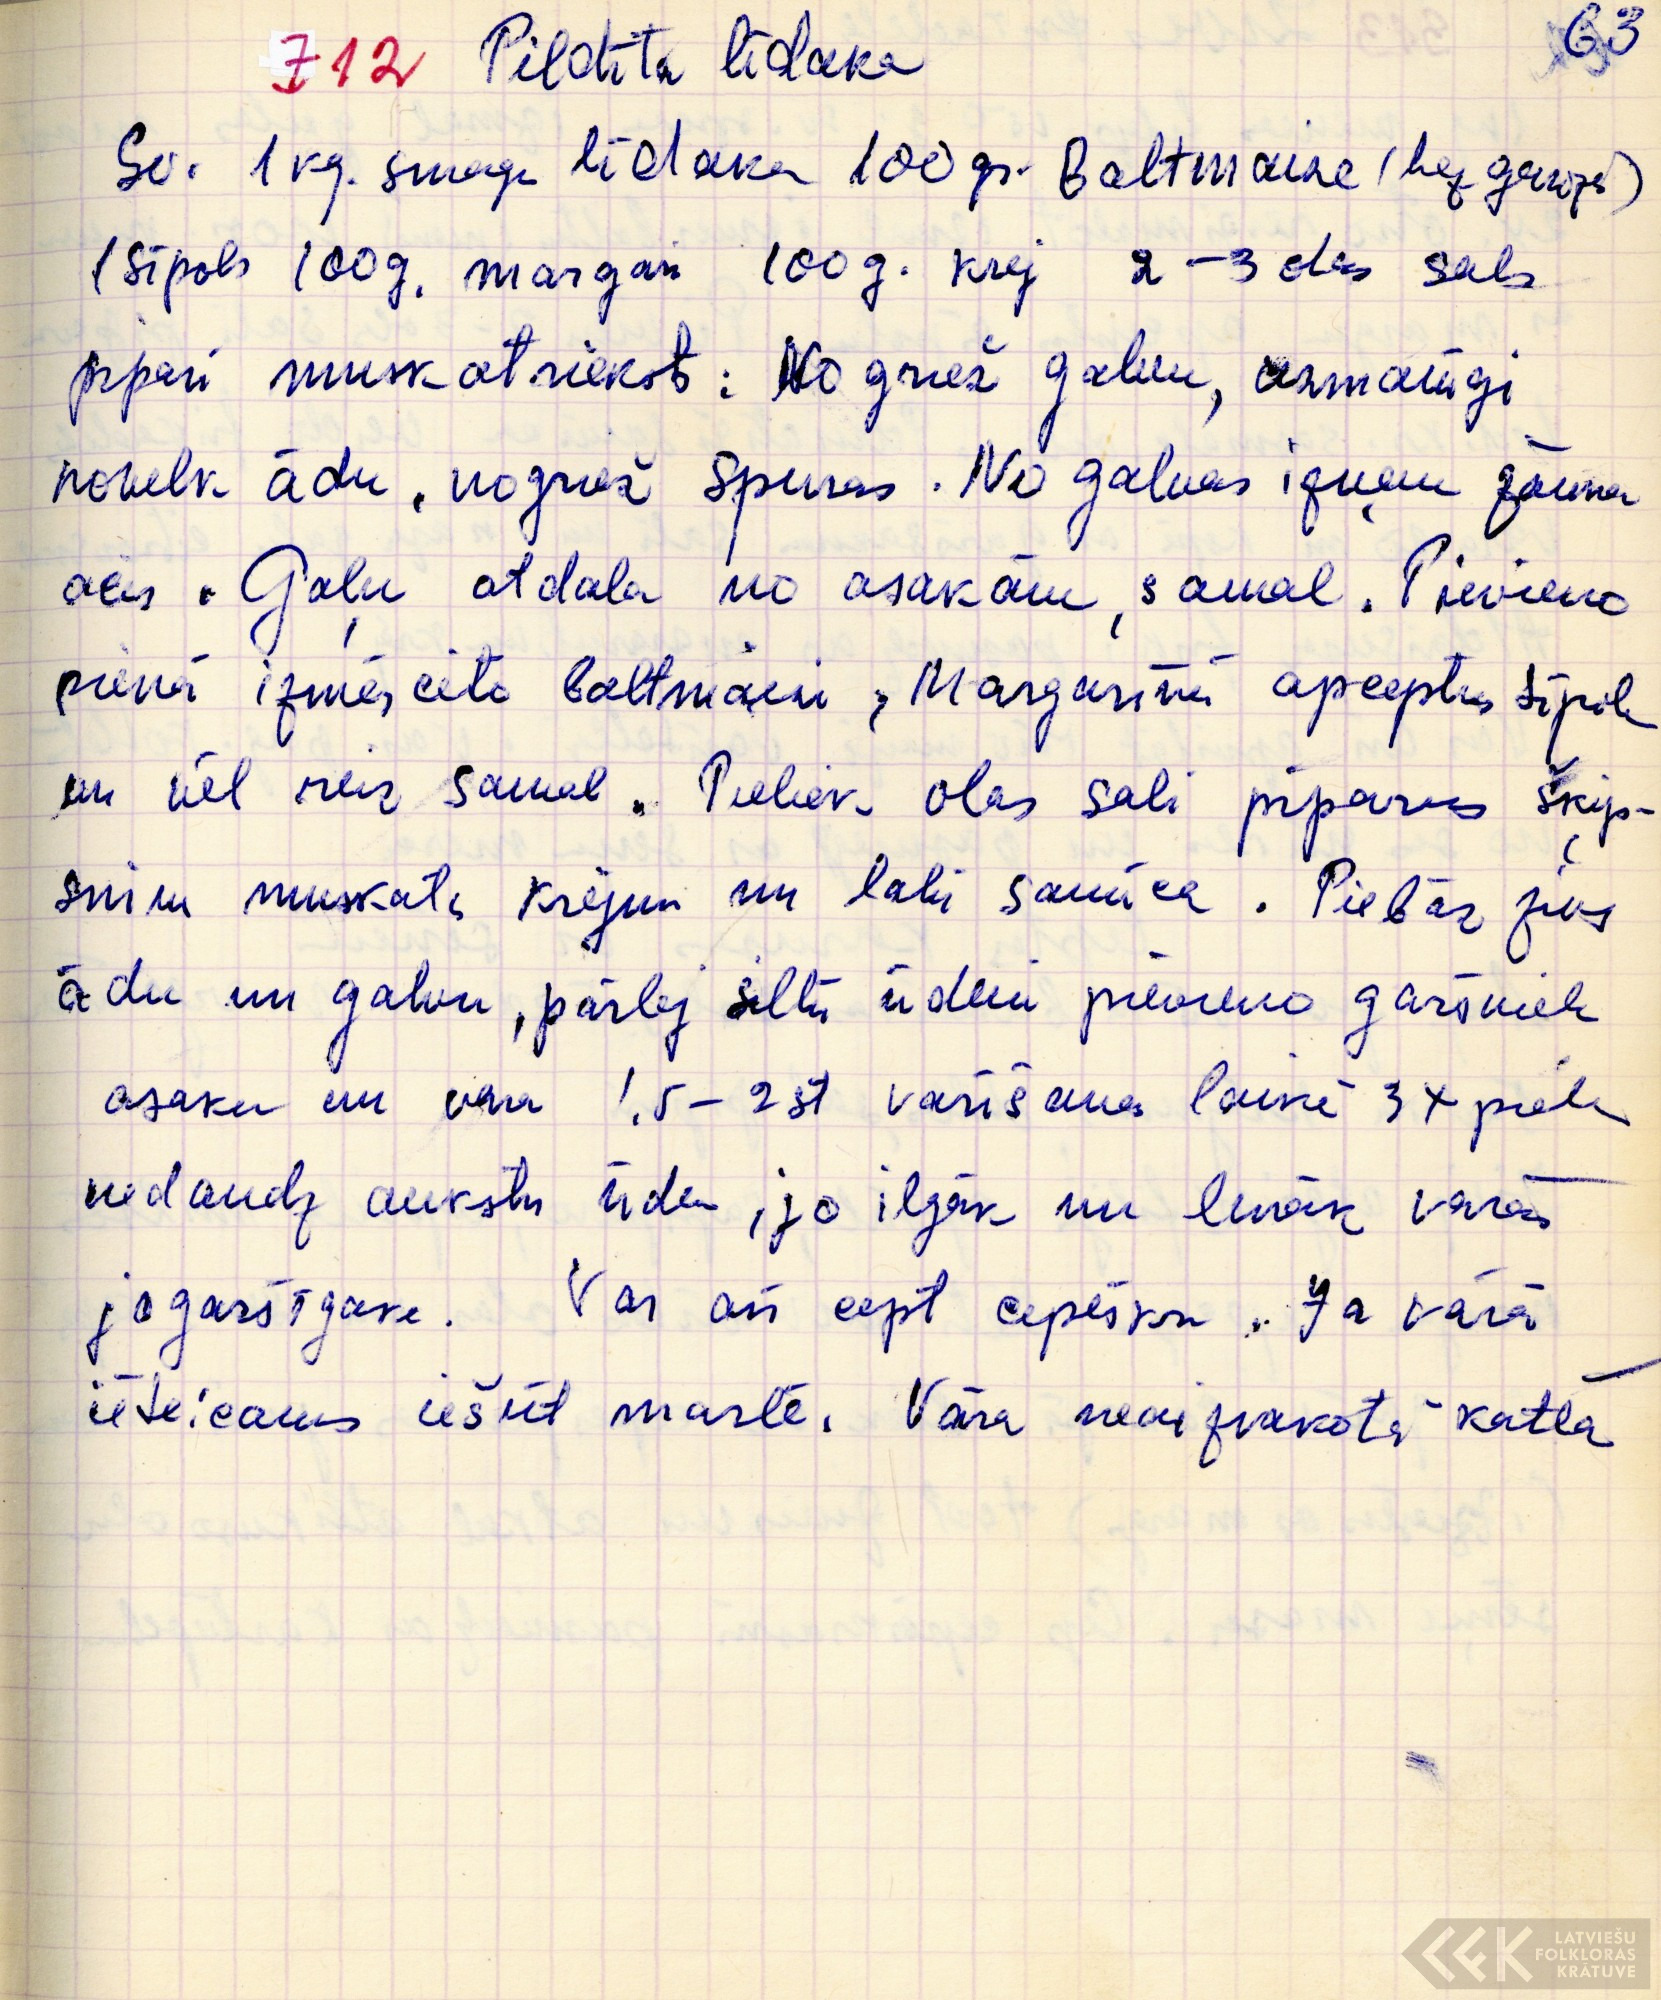 63
712 Pildīta līdaka
Sv. 1 kg. smaga līdaka 100 gr. Baltmaize (bez garoz)
1 sīpols 100g. margarī 100g. krēj 2-3 olas sals
pipari muskatrieksts: Nogriež galvu, uzmanīgi
novelk ādu, nogriež spuras. No galvas izņem žauna
acis. Gaļu atdala no asakām, samal. Pievieno
pienā izmērcētо baltmaizi, Margarīnā apceptus sīpolu
un vēl reiz samal. Pieliek olas sāli piparus šķip-
sniņu muskata krējumu un labi samīca. Piebāz zivs
ādu un galvu, pārlej siltu ūdeni pievieno garšviel
asaku un vāra 1,5-2 st vārīšanas laikā 3x pielej
nedaudz aukstu ūden, jo ilgāk un lēnāk vārās
jo garšīgāke. Var arī cept cepeškr. Ja vārā
ieteicams iešūt marlē. Vāra neaizvākotā katlā
LATVIEŠU
FOLKLORAS
KRĀTUVE